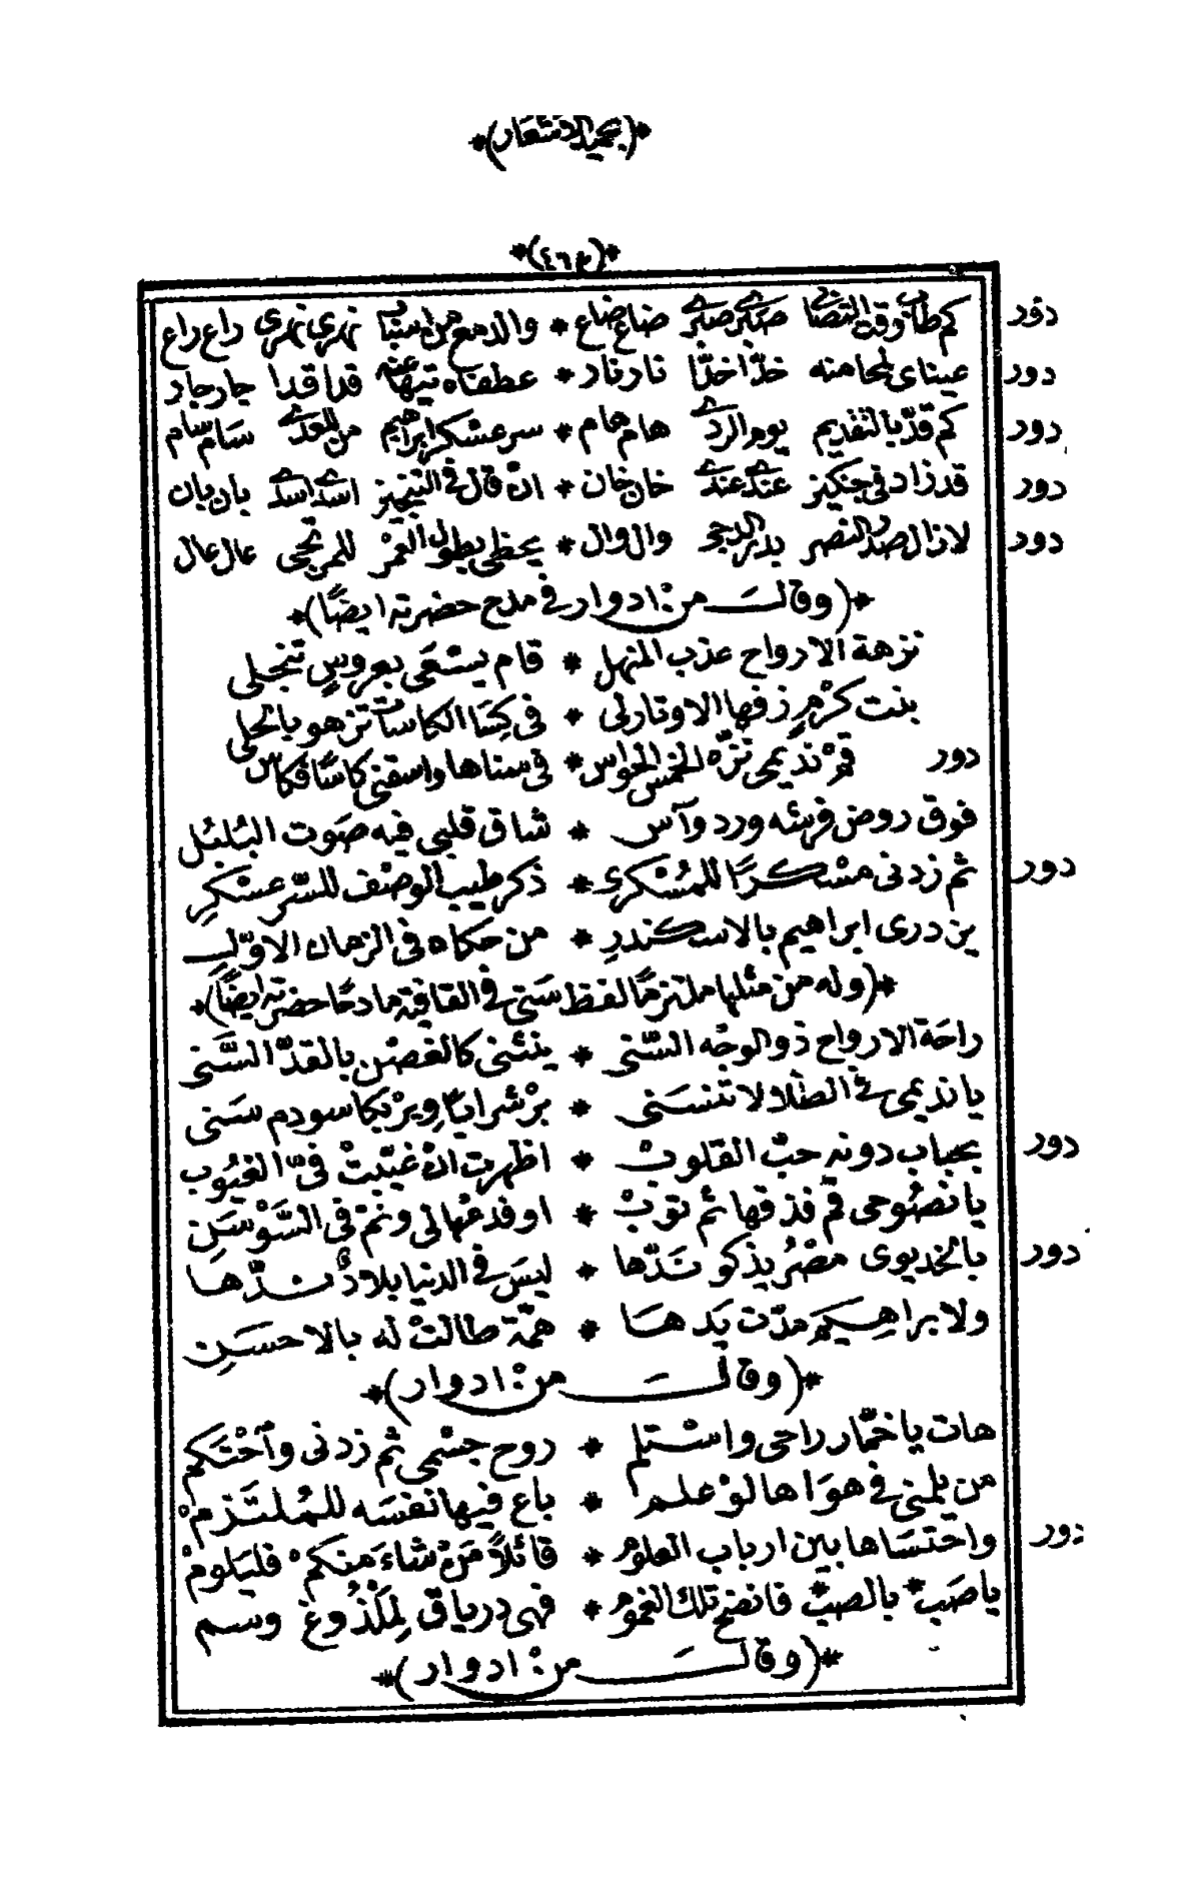 *(بحميد الاشعار)*
*(٤٦٩)*
دور كم طاب وقت التصابى صكرے صكرے ضاع ضاع * والدمع من اسبابى نهرى نهرى راع راع
دور عيناى لمحا منه خدّا خدّا نار نار * عطفناه تيها عنه قدا قدا جار جار
دور كم قدّ بالتقديم يوم الردے هام هام * سر عسكر ابراهيم من للعدے سام سام
دور قد زاد فى جنكيز عندے عندے خان خان * ان قال فى التبجيز اسدے اسدے بان بان
دور لا زال صدر النصر بدر الدجى وال وال * يحظى بطول العمر للمرتجى عال عال
*(وقالـــــ من ادوار فى مدح حضرته ايضًا)*
نزهة الارواح عذب المنهل * قام يسعى بعروسٍ تنجلى
بنت كرْمٍ زفها الاوتار لى * فى كِسَا الكاسات تزهو بالحلى
دور قمْ نديمى نزّه الخمس الحواس * فى سناها واسقنى كاسًا فكاس
فوق روض فرشه ورد وآس * شاق قلبى فيه صَوت البُلبُل
دور ثم زدنى مسْكرًا للمُسْكرى * ذكر طيب الوصْف للسّر عسْكرِ
يزدرى ابراهيم بالاسكندرِ * من حكاه فى الزمان الاوّلِ
*(وله من مثلها ملتزمًا لفظ سَنى فى القافية مادحًا حضرته ايضًا)*
راحَة الارواح ذو الوجْه السّنى * ينثنى كالغصْن بالقدّ السَّنى
يا نديمى فى الطلا لا تنسَنى * برْشرابًا ويرْ بكا سودم سَنى
دور بحباب دونه حبّ القلوبْ * اظهرت انْ غيّبتْ فىّ الغيُوب
يا نصُوحى قمْ فذقها ثم توبْ * او فدعْها لى ونمْ فى السَّوْسَنِ
دور بالخديوى مصْرُ يذكو نَدّها * ليسَ فى الدنيا بلادٌ ندّها
ولابراهِيم مدّت يَدها * همّة طالتْ له بالاحسَنِ
*(وقالـــــ من ادوار)*
هات يا خمّار راحى واسْتلم * روح جسْمى ثم زدنى وآحْتَكم
من يلمنى فى هوَاها لوْ علم * باع فيها نفسَه للمُلتَزمْ
دور واحتسَاها بين ارباب العلوم * قائلاً مَنْ شاءَ منكمْ فليَلومْ
يا صَبّ بالصبّ فانضح تلك الغموم * فهى درياق لِمَلْذُوغ وسم
*(وقالـــــ من ادوار)*